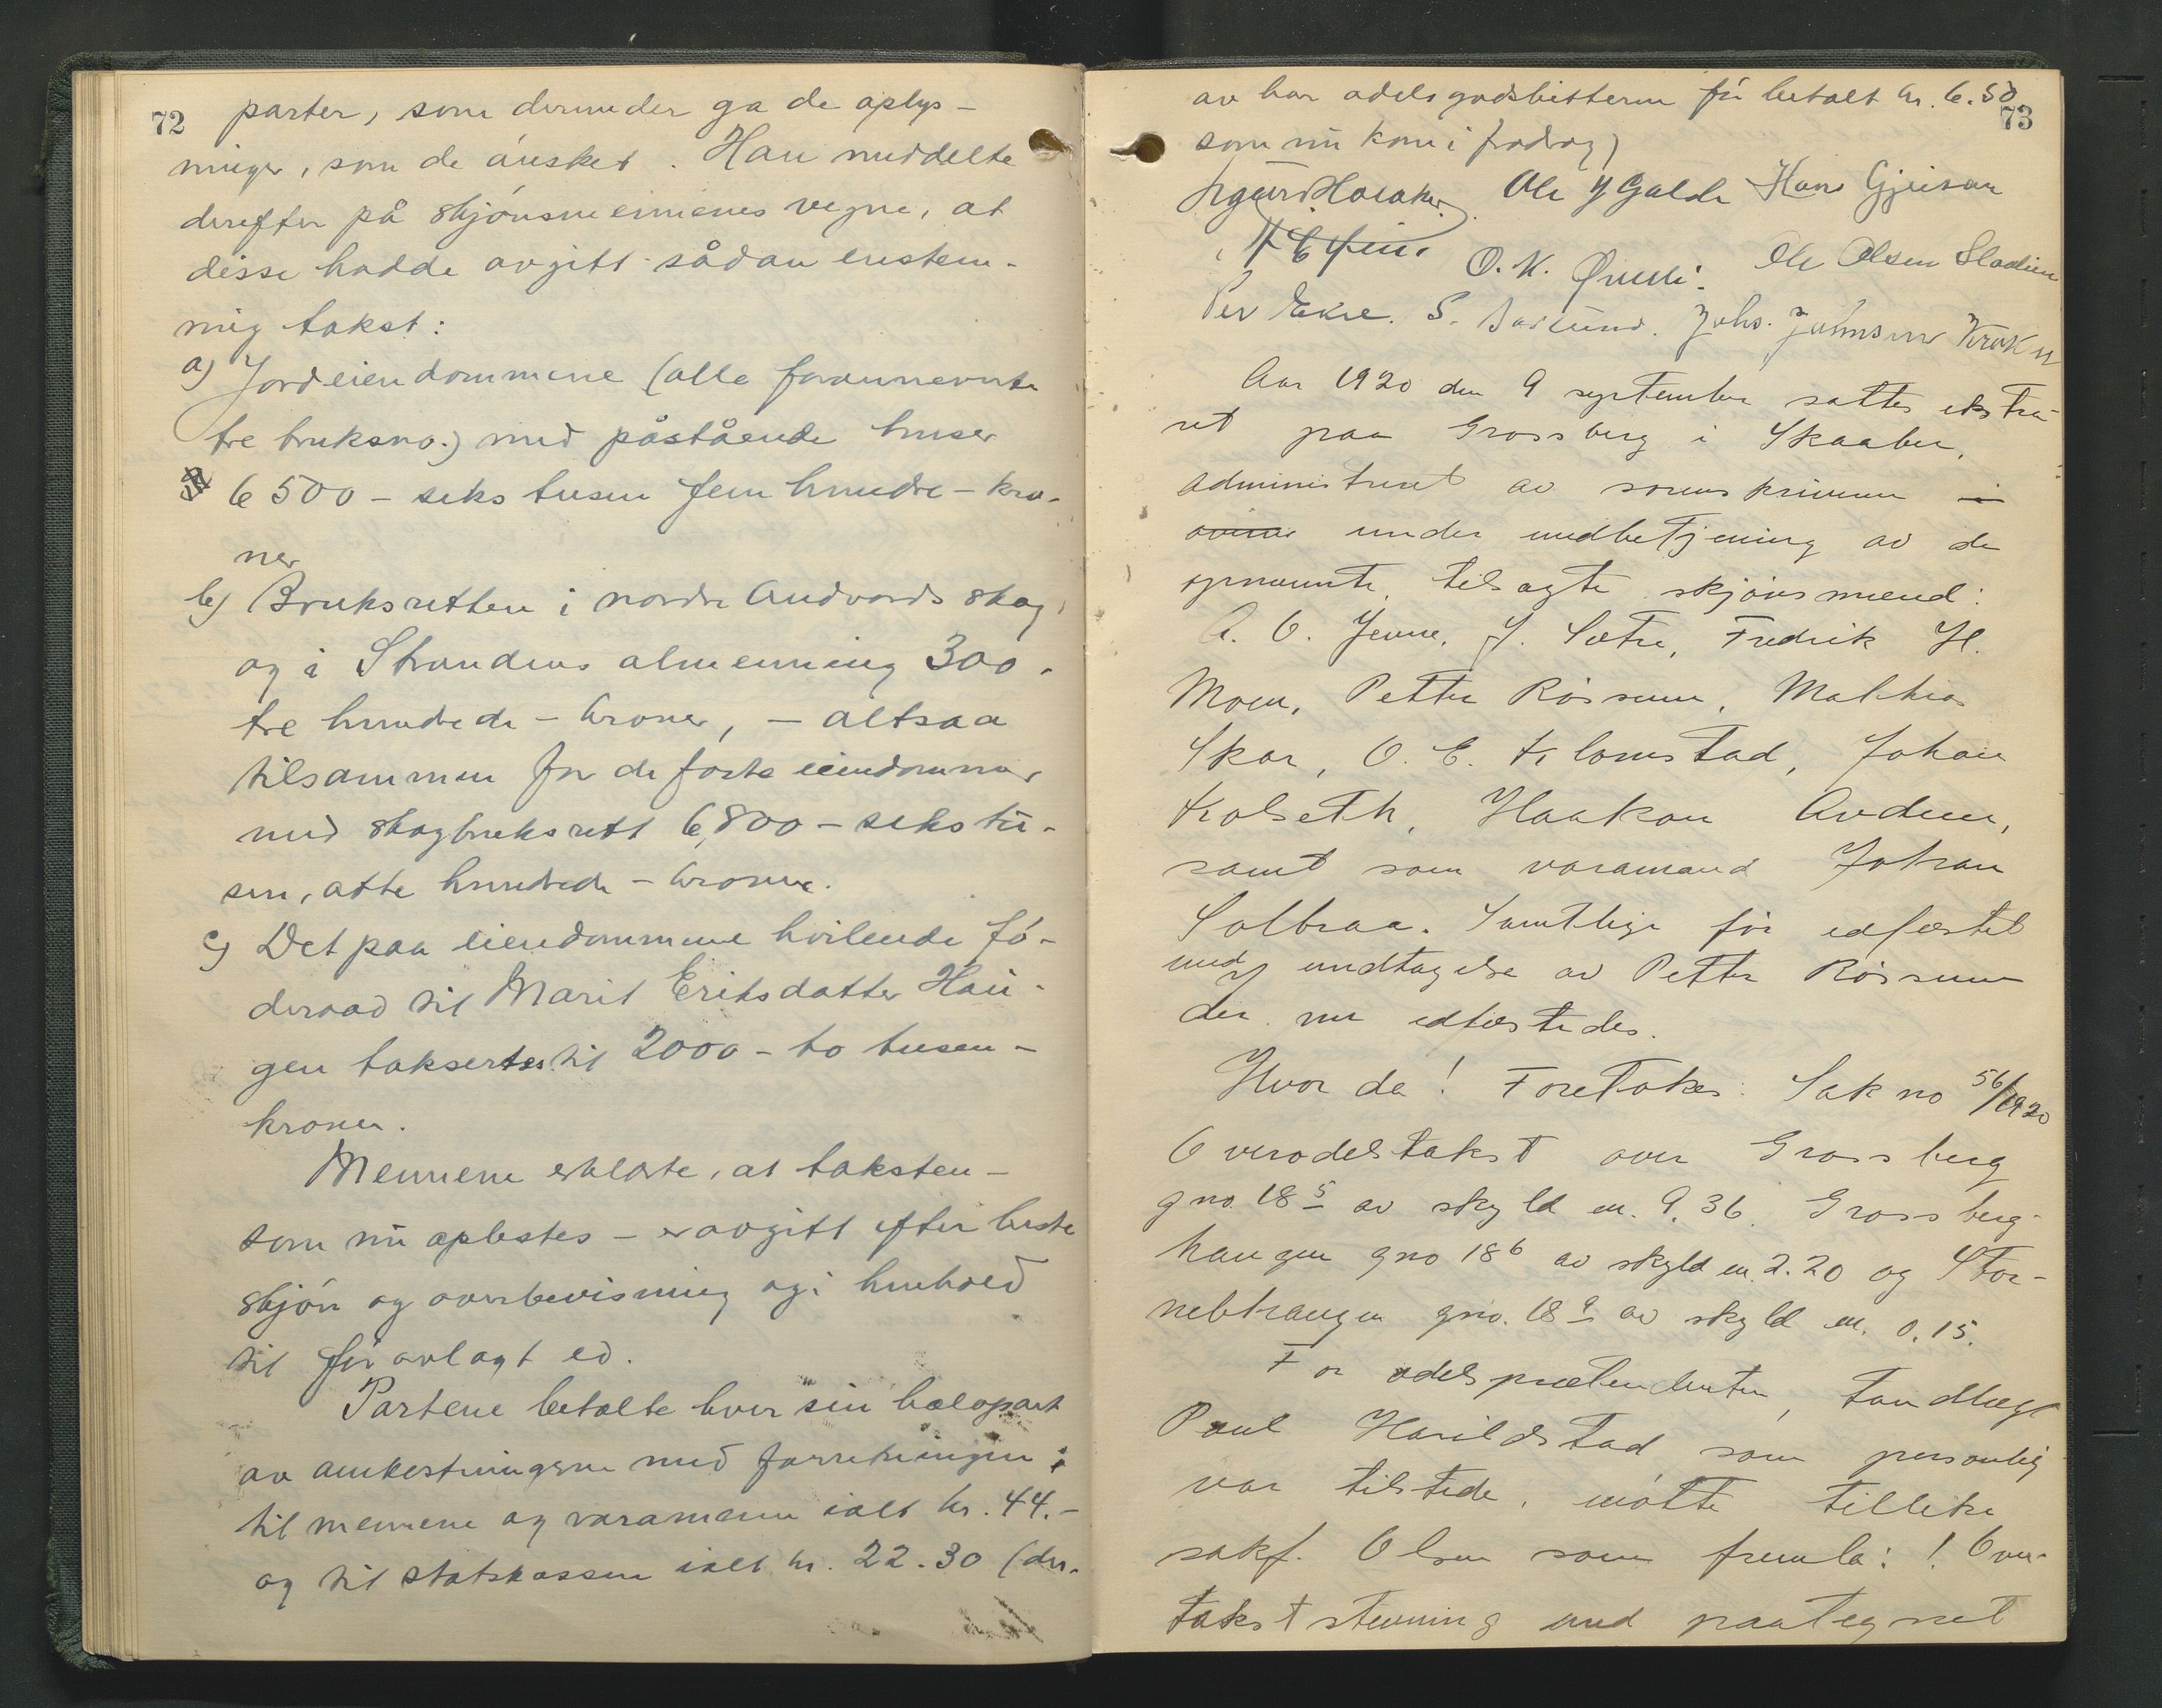 72
parter, som derunder ga de oplys-
ninger, som de ønsket. Han meddelte
derefter på skjønsmennenes vegne, at
disse hadde avgitt sådan enstem-
mig takst:
a) Jordeiendommene (alle forannevnte
tre bruksno.) med påstående huser
6 500 - seks tusen fem hundre - kro-
ner
b) Bruksretten i nordre Andvords skog
og i Strandens almenning 300 -
tre hundrede - kroner, - altsaa
tilsammen for de faste eiendommer
med skogbruksrett 6,800 - seks tu-
sen, otte hundrede - kroner.
c) Det paa eiendommene hvilende fø-
deraad til Marit Eriksdatter Hau-
gen taksertes til 2000 - to tusen -
kroner.
Mennene erklærte, at taksten -
som nu oplestes - er avgitt efter beste
skjøn og overbevisning og i henhold
til før avlagt ed.
Partene betalte hver sin halvpart
av omkostningerne med forretningen:
til mennene og varamann ialt kr. 44.-
og til statskassen ialt kr. 22.30 (der-
73
av har odelsgodsbesitteren før betalt kr. 6.50
som nu kom i fradrag)
Ole Y Galde Hans
O. K. Ole Olsen
Per Ekre. S. Johs. Johnsen
Aar 1920 den 9 september sattes ekstra-
ret paa Grossberg i Skaabu,
administreret av sorenskriveren i
under medbetjening av de
opnævnte, tilsagte skjønsmænd:
A. O. J. Sætre, Fredrik H.
Moen, Petter Røssum, Mathias
Skar, O. E. Klomstad, Johan
Kolseth, Haakon Andem,
samt som varamand Johan
Solbraa. Samtlige før edfæstet
med undtagelse av Petter Røssum
der nu edfæstedes.
Hvorda! Foretokes: Sak no 56/1920
Overodelstakst over Grossberg
gno. 18 5 av skyld m. 9.36. Grossberg-
haugen gno 18 6 av skyld m. 2.20 og Stor-
nebhaugen gno. 18 9 av skyld m. 0.15.
For odelsprætendenten, tandlæge
Paul Harildstad som personlig
var tilstede, møtte tillike
sakf. Olsen som fremla: 1. Over-
takststevning med paategnet